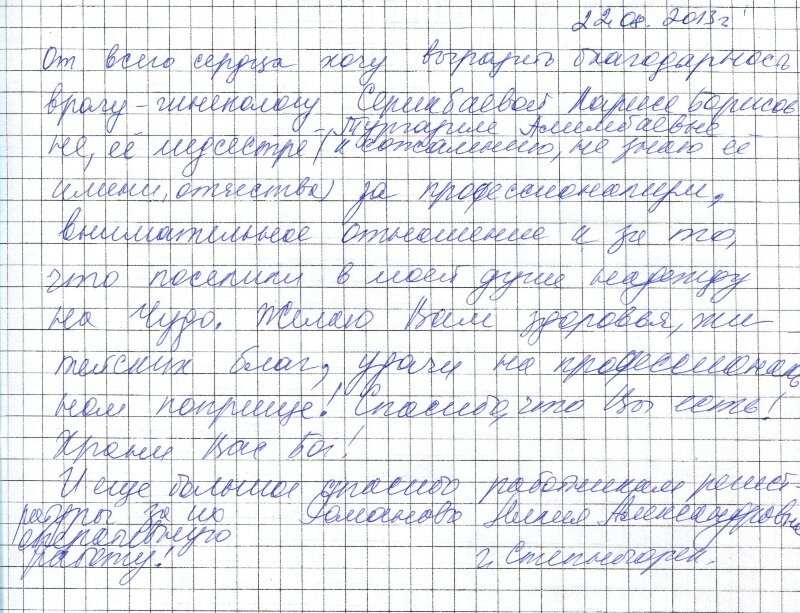 22.08.2013г
От всего сердца хочу выразить благодарность
врачу-гинекологу Серикбаевой Ларисе Борисов
Алимбаевне
не, её медсестре (к сожалению, не знаю её
имени, отчества) за профессионализм,
внимательное отношение и за то,
что поселили в моей душе надежду
на Чудо. Желаю Вам здоровья, жи
тейских благ, удачи на профессиональ
ном поприще! Спасибо, что Вы есть!
Храни Вас Бог!
И еще большое спасибо работникам регист-
ратуры за их Романова Александровна
оперативную
работу! г. Степногорск.